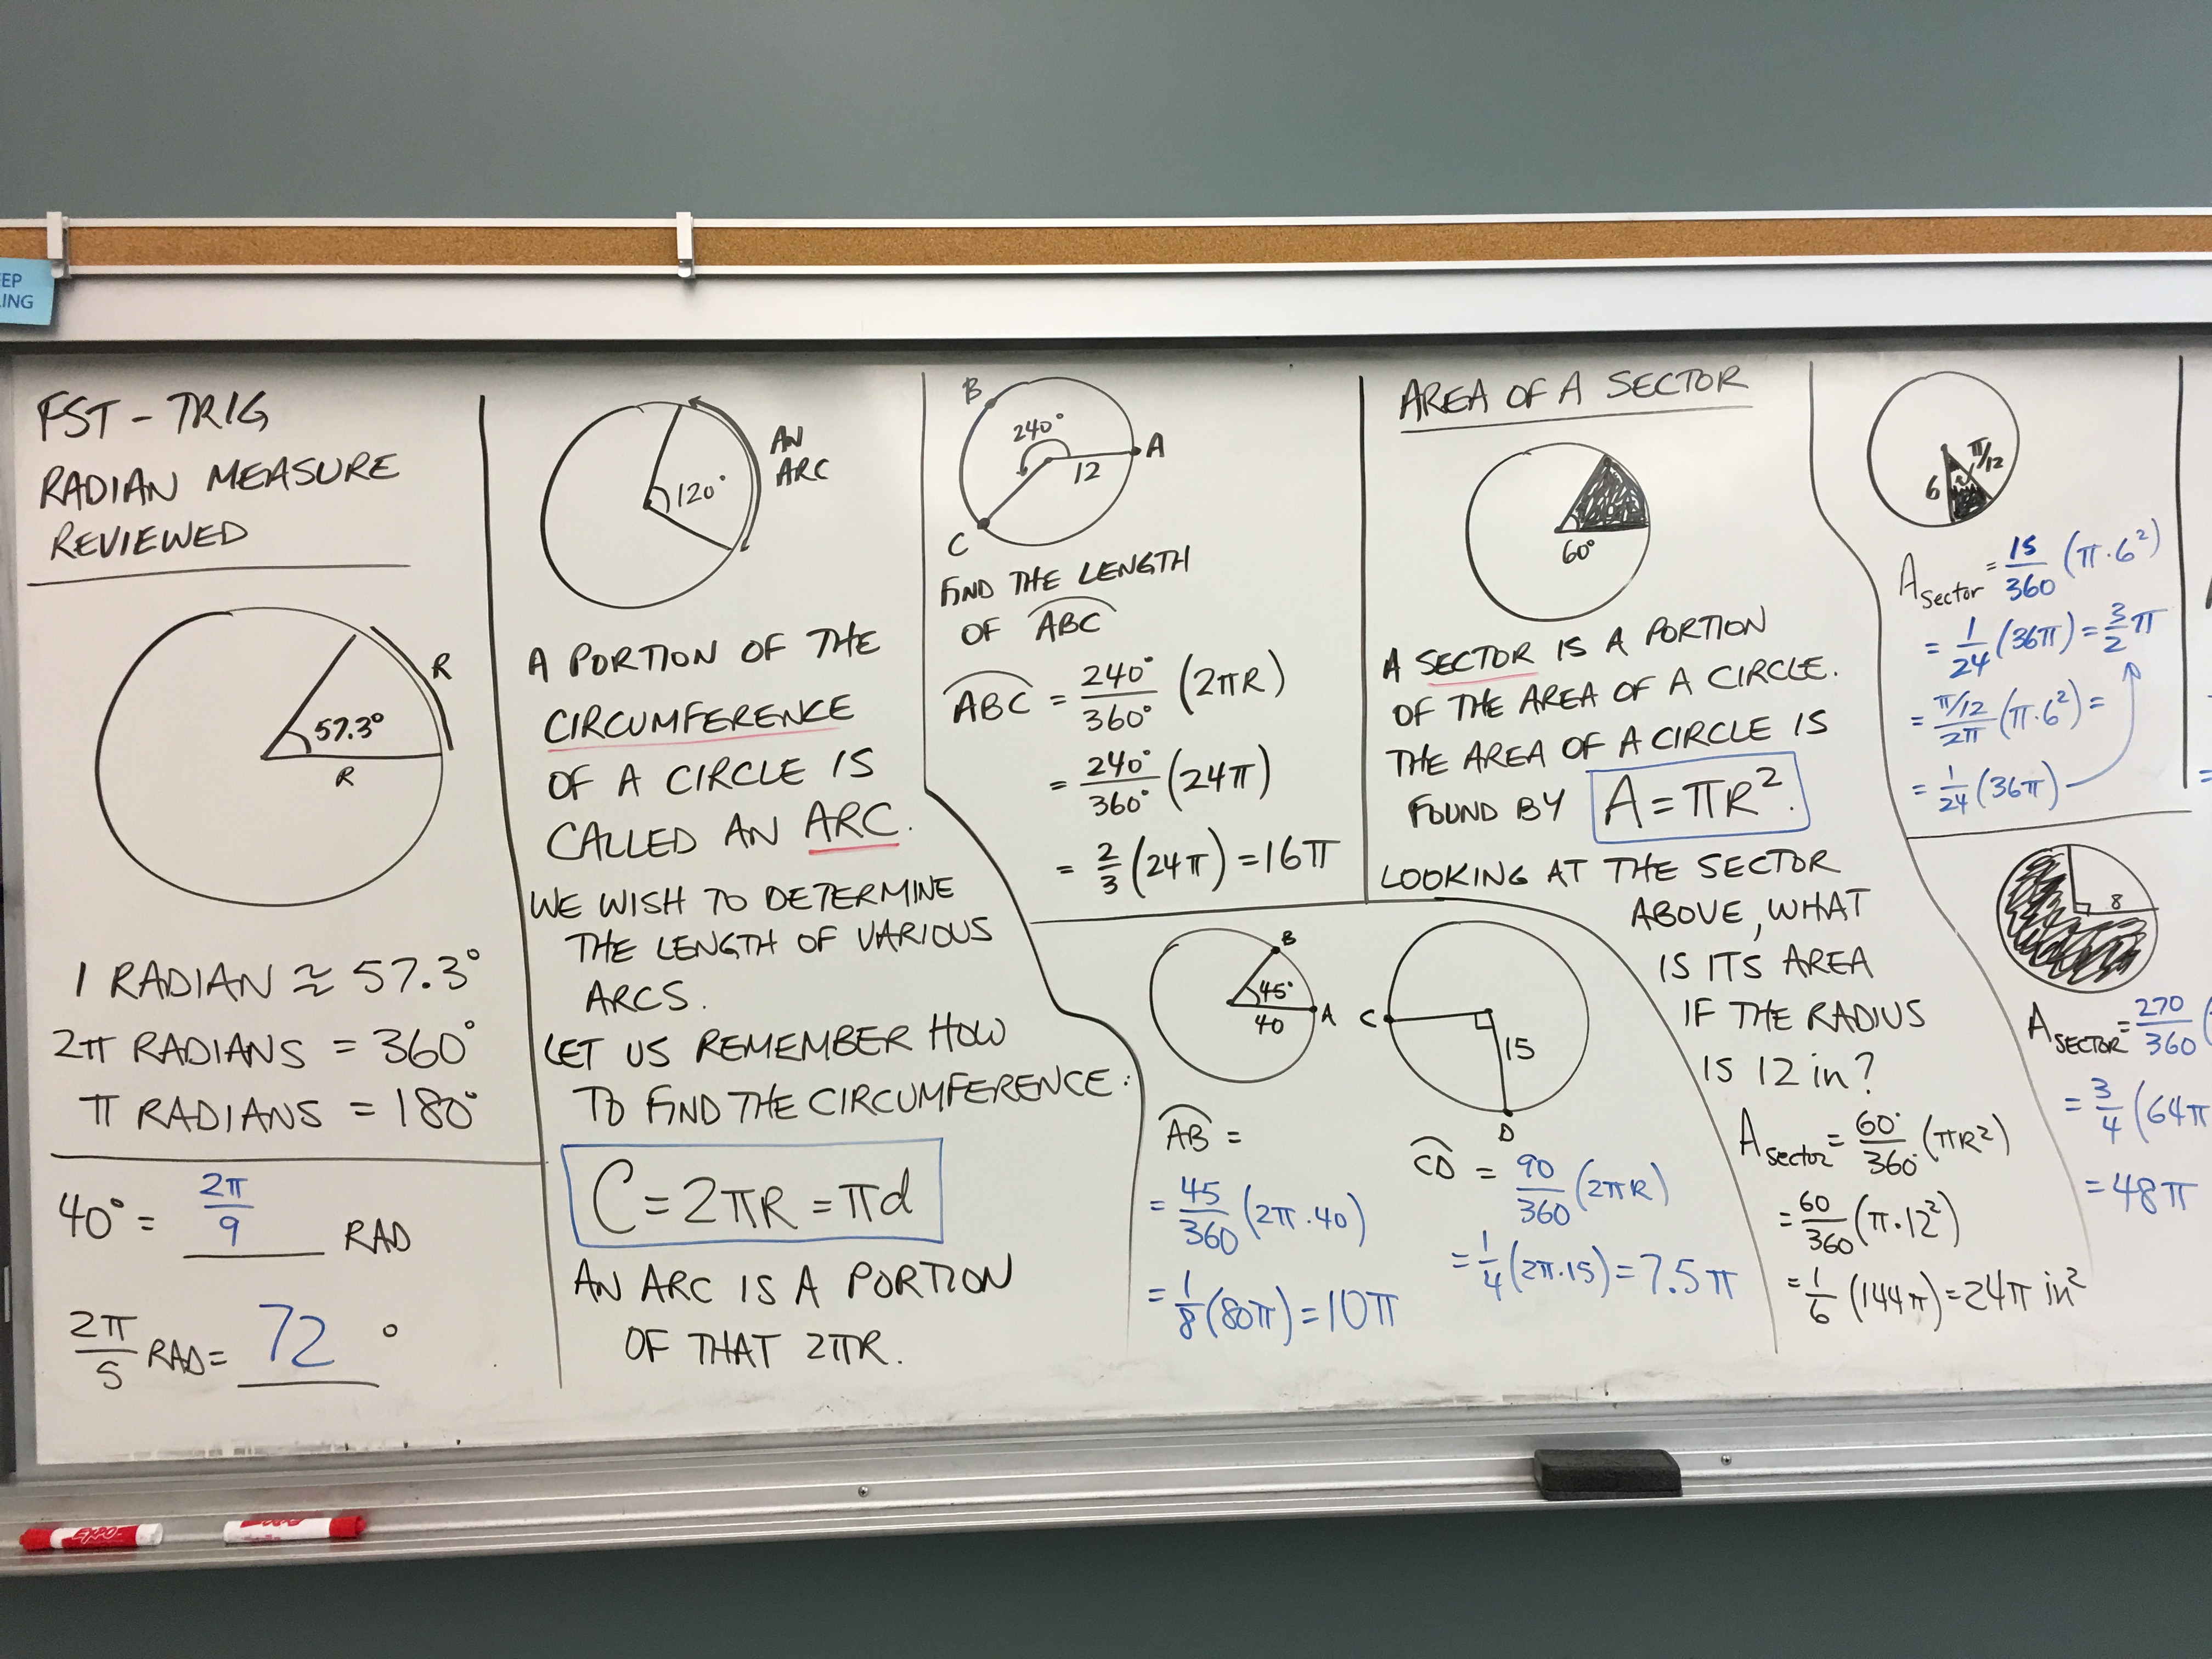 EP
ING
FST - TRIG
RADIAN MEASURE
REVIEWED
R
57.3°
R
1 RADIAN ≈ 57.3°
2π RADIANS = 360°
π RADIANS = 180°
40° = 2π/9 RAD
2π/5 RAD = 72 °
AN
ARC
120°
A PORTION OF THE
CIRCUMFERENCE
OF A CIRCLE IS
CALLED AN ARC.
WE WISH TO DETERMINE
THE LENGTH OF VARIOUS
ARCS.
LET US REMEMBER HOW
TO FIND THE CIRCUMFERENCE:
C = 2πR = πd
AN ARC IS A PORTION
OF THAT 2πR.
B
240°
A
12
C
FIND THE LENGTH
OF ABC
ABC = 240°/360° (2πR)
= 240°/360° (24π)
= 2/3 (24π) = 16π
B
45°
A
40
AB =
= 45/360 (2π·40)
= 1/8 (80π) = 10π
C
15
D
CD = 90/360 (2πR)
= 1/4 (2π·15) = 7.5π
AREA OF A SECTOR
60°
A SECTOR IS A PORTION
OF THE AREA OF A CIRCLE.
THE AREA OF A CIRCLE IS
FOUND BY A = πR².
LOOKING AT THE SECTOR
ABOVE, WHAT
IS ITS AREA
IF THE RADIUS
IS 12 in?
A sector = 60°/360° (πR²)
= 60/360 (π·12²)
= 1/6 (144π) = 24π in²
π/12
6
A sector = 15/360 (π·6²)
= 1/24 (36π) = 3/2 π
= π/12/2π (π·6²) =
= 1/24 (36π)
8
A SECTOR = 270/360 (
= 3/4 (64π
= 48π
=
EXPO